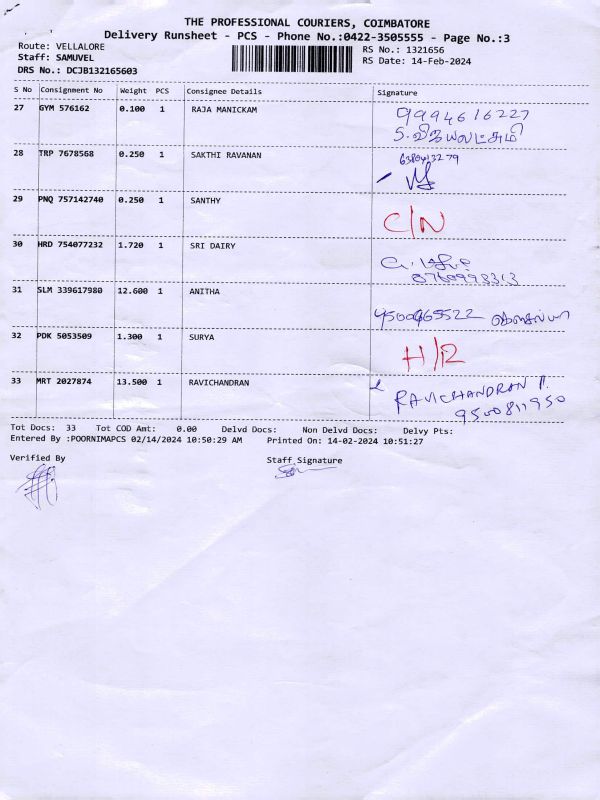 THE PROFESSIONAL COURIERS, COIMBATORE
Delivery Runsheet - PCS - Phone No.:0422-3505555 - Page No.:3
Route: VELLALORE RS No.: 1321656
Staff: SAMUVEL RS Date: 14-Feb-2024
DRS No.: DCJB132165603
S No Consignment No Weight PCS Consignee Details Signature
27 GYM 576162 0.100 1 RAJA MANICKAM 9994616227
S.விஜயலட்சுமி
28 TRP 7678568 0.250 1 SAKTHI RAVANAN
29 PNQ 757142740 0.250 1 SANTHY C/N
30 HRD 754077232 1.720 1 SRI DAIRY
31 SLM 339617980 12.600 1 ANITHA 9500465522
32 PDK 5053509 1.300 1 SURYA H/R
33 MRT 2027874 13.500 1 RAVICHANDRAN RAVICHANDRAN P.
9500811950
Tot Docs: 33 Tot COD Amt: 0.00 Delvd Docs: Non Delvd Docs: Delvy Pts:
Entered By :POORNIMAPCS 02/14/2024 10:50:29 AM Printed On: 14-02-2024 10:51:27
Verified By Staff Signature